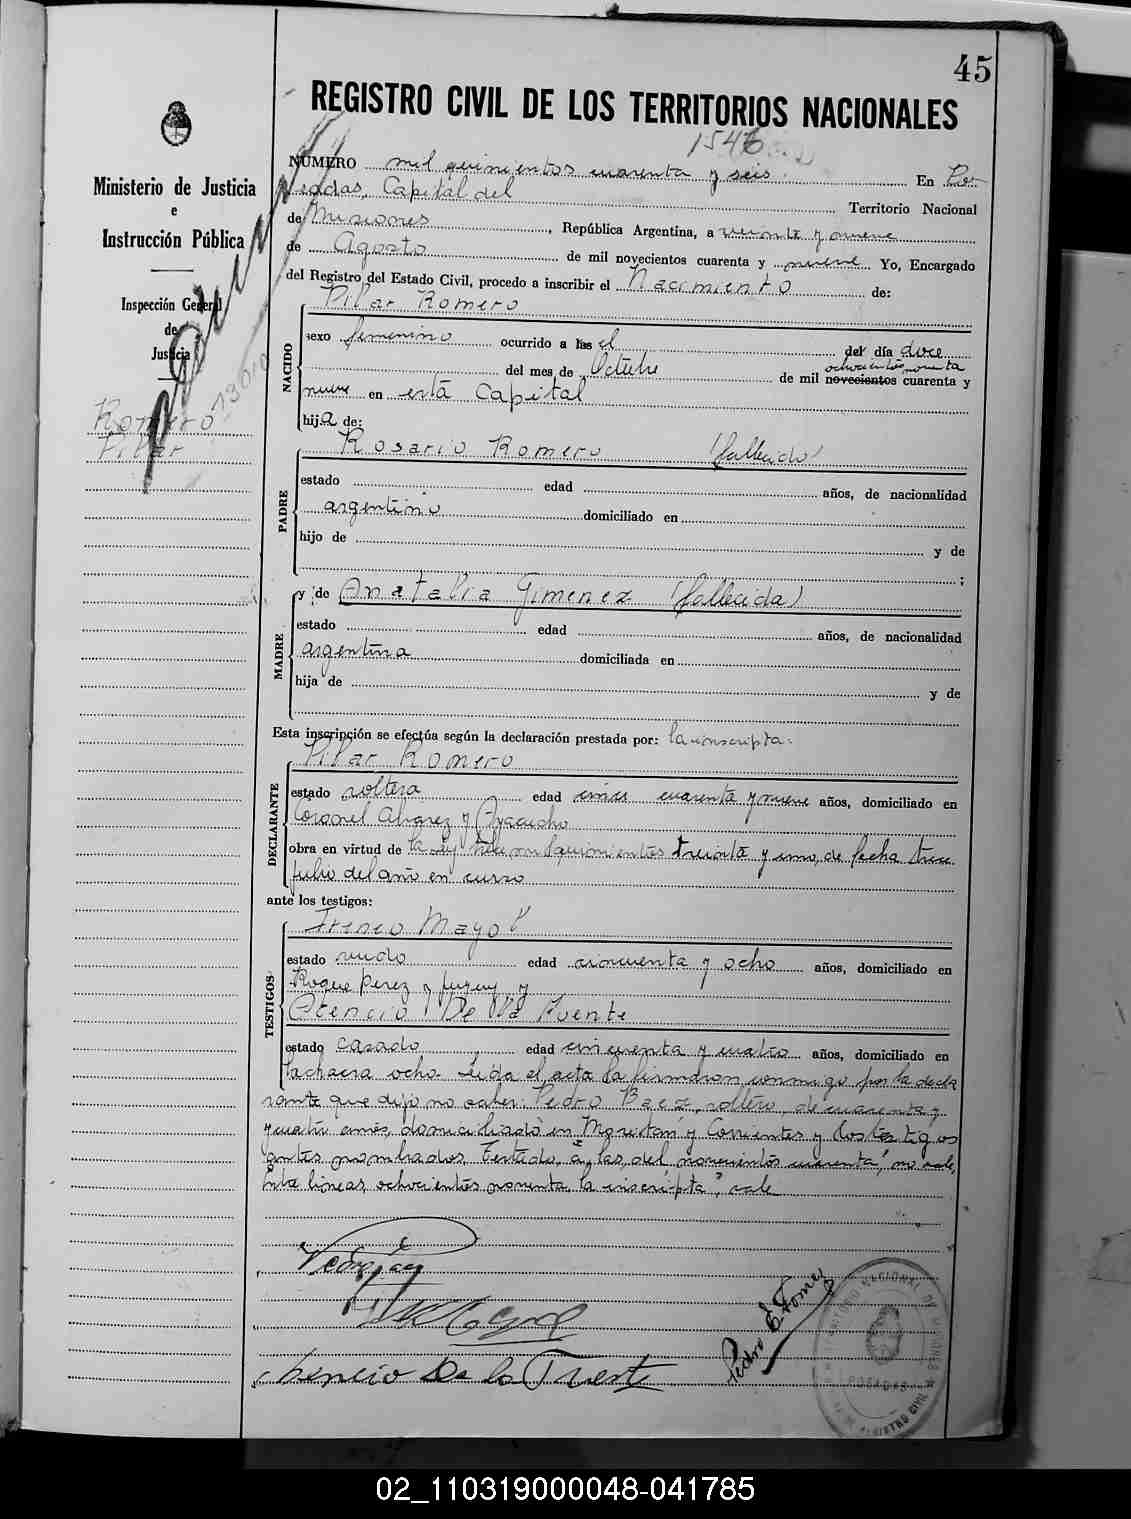 45
REGISTRO CIVIL DE LOS TERRITORIOS NACIONALES
1546
Ministerio de Justicia
e
Instrucción Pública
Inspección General
de
Justicia
Romero
Pilar
NÚMERO mil quinientos cuarenta y seis. En Po-
sadas, Capital del Territorio Nacional
de Misiones, República Argentina, a veinte y nueve
de Agosto de mil novecientos cuarenta y nueve Yo, Encargado
del Registro del Estado Civil, procedo a inscribir el Nacimiento de:
Pilar Romero
NACIDO
sexo femenino ocurrido a las el del día doce
del mes de Octubre de mil novecientos cuarenta y
ochocientos noventa
nueve en esta Capital
hija de:
Rosario Romero (fallecido)
PADRE
estado edad años, de nacionalidad
argentino domiciliado en
hijo de y de
;
y de Anatalia Gimenez (fallecida)
MADRE
estado edad años, de nacionalidad
argentina domiciliada en
hija de y de
Esta inscripción se efectúa según la declaración prestada por: la inscripta.
Pilar Romero
DECLARANTE
estado soltera edad cuarenta y nueve años, domiciliado en
Coronel Alvarez y Ayacucho
obra en virtud de la ley trece mil quinientos treinta y uno, de fecha trece
julio del año en curso
ante los testigos:
Ireneo Mayol
TESTIGOS
estado viudo edad cincuenta y ocho años, domiciliado en
Roque Perez y Jujuy y
Atencio De la Fuente
estado casado edad cincuenta y cuatro años, domiciliado en
la chacra ocho. Leida el acta la firmaron conmigo por la decla
rante que dijo no saber: Pedro Baez, soltero, de cuarenta y
y cuatro años, domiciliado en y Corrientes y los testigos
antes nombrados. Testado, a, las, del, novecientos cuarenta, no vale,
lineas, ochocientos noventa, la inscripta, vale
Atencio De la Fuente
Pedro E. Gomez
POSADAS
REGISTRO CIVIL
02_110319000048-041785